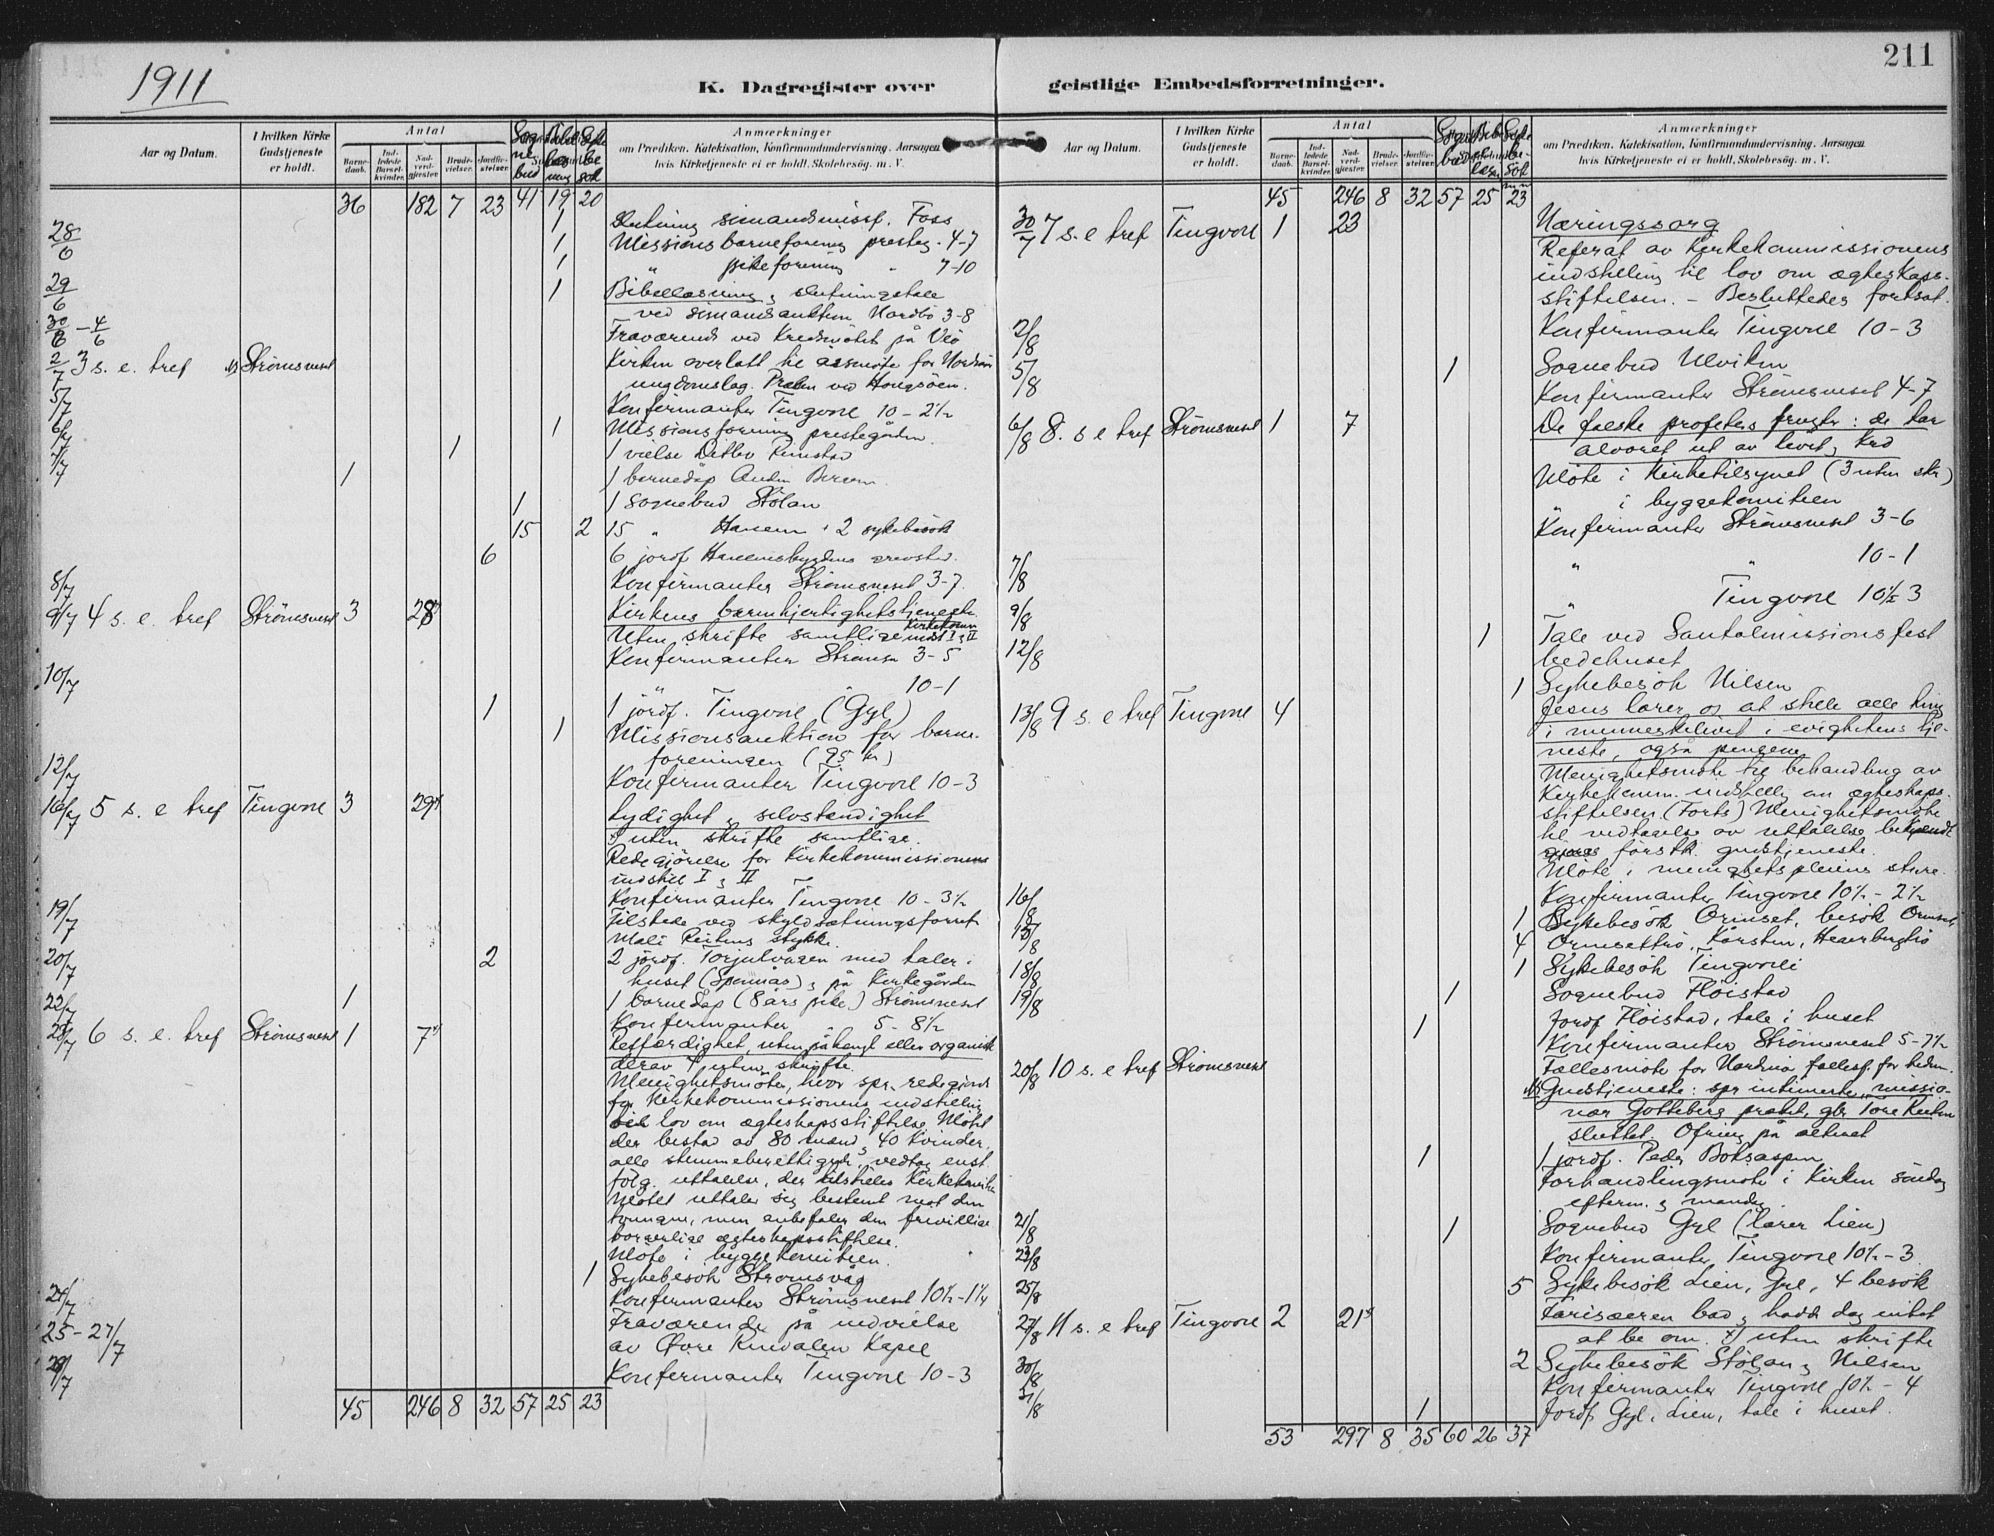 211
1911
K. Dagregister over
geistlige Embedsforretninger.
Aar og Datum.
I hvilken Kirke Gudstjeneste er holdt.
Antal
Barne-daab.
Ind-ledede Barsel-kvinder.
Nad-verd-gjæster.
Brude-vielser.
Jordfæ-stelser.
Anmærkninger
om Prædiken. Katekisation, Konfirmandundervisning. Aarsagen
hvis Kirketjeneste ei er holdt. Skolebesøg. m. V.
36 182 7 23 41 19 20
28/6 1 Foss
1 Missions barneforening presteg. 4-7
1 " pikeforening " 7-10
29/6 1 Bibellæsning, slutningstale
3-8
Fraværende ved Kredsmötet på Veö
2/7 3 s. e. tref Strömsneset Kirken overlatt til årsmöte for Nordmör
ungdomslag. ved Hongsöen.
5/7 Konfirmanter Tingvoll 10 - 2½
6/7 1 Missionsforening prestegården.
7/7 1 1 vielse Ditlev Rimstad
1 1 barnedåp
1 1 Sognebud Stölan
15 2 15 " Hanem + 2 sykebesök
6 6 jordf Hanemsbygdens gravsted.
8/7 Konfirmanter Strömsneset 3-7.
9/7 4 s. e. tref Strömsneset 3 28 Kirkens barmhjertighetstjeneste
Uten skrifte samtlige Kirkekomm indst I & II
Konfirmanter Strömsn 3-5
10/7 " " 10-1
1 1 jordf. Tingvoll (Gyl)
1 Missionsauktion for barne-
foreningen (95 kr)
12/7 Konfirmanter Tingvoll 10-3
16/7 5 s. e tref Tingvoll 3 29 Lydighet & selvstendighet
uten skrifte samtlige.
Redegjörelse for Kirkekommissionens
indstill I & II
Konfirmanter Tingvoll 10 - 3½
19/7 Tilstede ved skyldsætningsforret
stykke.
20/7 2 2 jordf. Torjulvågen med taler i
huset (Spernnås) & på Kirkegården
22/7 1 1 barnedåp (8 års pike) Strömsneset
Konfirmanter " 5 - 8½
23/7 6 s. e. tref Strömsneset 1 7 Retfærdighet, uten påhengt eller organisk
derav uten skrifte.
Menighetsmöte, hvor spr. redegjorde
for Kirkekommissionens indstilling
til lov om ægteskapsstiftelse. Mötet
der bestod av 80 mænd & 40 kvinder,
alle stemmeberettigede, vedtog enst.
fölg. uttalelse, der tilstilles Kirkekomiteen
Mötet uttaler sig bestemt mot den
tvungne, men anbefaler den frivillige
borgerlige ægteskapsstiftelse.
Möte i byggekomiteen.
1 Sykebesök Strömsvåg
24/7 Konfirmanter Strömsneset 10½-1¼
25-27/7 Fraværende på indvielse
av Övre Rindalen Kapel
Konfirmanter Tingvoll 10-3
45 246 8 32 57 25 23
Aar og Datum.
I hvilken Kirke Gudstjeneste er holdt.
Antal
Barne-daab.
Ind-ledede Barsel-kvinder.
Nad-verd-gjæster.
Brude-vielser.
Jordfæ-stelser.
Anmærkninger
om Prædiken. Katekisation, Konfirmandundervisning. Aarsagen
hvis Kirketjeneste ei er holdt. Skolebesøg. m. V.
45 246 8 32 57 25 23
30/7 7 s. e tref Tingvoll 1 23 Næringssorg
Referat av Kirkekommissionens
indstilling til lov om ægteskaps-
stiftelsen. - Besluttedes fortsat.
2/8 Konfirmanter Tingvoll 10 - 3
5/8 1 Sognebud Ulviken
Konfirmanter Strömsneset 4-7
6/8 8. s e tref Strömsneset 1 7 De falske profeters frugter: de tar
alvoret ut av livet,
Möte i Kirketilsynet (3 uten skr)
" i byggekomiteen
Konfirmanter Strömsneset 3-6
7/8 " " 10-1
9/8 " Tingvoll 10½ 3
12/8 1 Tale ved Santalmissionsfest
bedehuset
1 Sykebesök Nilsen
13/8 9 s. e tref Tingvoll 4 Jesus lærer os at stille alle ting
i menneskelivet i evighetens tje-
neste, også pengene
Menighetsmöte til behandling av
Kirkekomm. indstilling om ægteskaps-
stiftelsen (Forts) Menighetsmöte
til vedtagelse av uttalelse bekjendt-
gjöres förstk. gudstjeneste.
Möte i menighetspleiens styre.
16/8 Konfirmanter Tingvoll 10½ - 2½
1 Sykebesök Ormset, besök Ormset
4 Ormsettrö, Karsten,
18/8 1 Sykebesök Tingvoll
19/8 1 Sognebud Höistad
1 Jordf Höistad, tale i huset
Konfirmanter Strömsneset 5-7½
20/8 10 s. e tref Strömsneset Fællesmöte for Nordmör fællesf. for hedn.
Gudstjeneste: spr intimerte, missio-
nær Götteberg prækte,
sluttet. Ofring på alteret
1 1 jordf. Peder
Forhandlingsmöte i Kirken söndag
efterm. & mandag
21/8 1 Sognebud Gyl (lærer Lien)
23/8 Konfirmanter Tingvoll 10½ - 3
25/8 5 Sykebesök Lien, Gyl, 4 besök
27/8 11 s. e tref Tingvoll 2 21 Farisæeren bad & hadde dog intet
at be om. uten skrifte
30/8 2 Sykebesök Stölan & Nilsen
Konfirmanter Tingvoll 10½ - 4
31/8 1 Jordf Gyl, Lien, tale i huset.
53 297 8 35 60 26 37